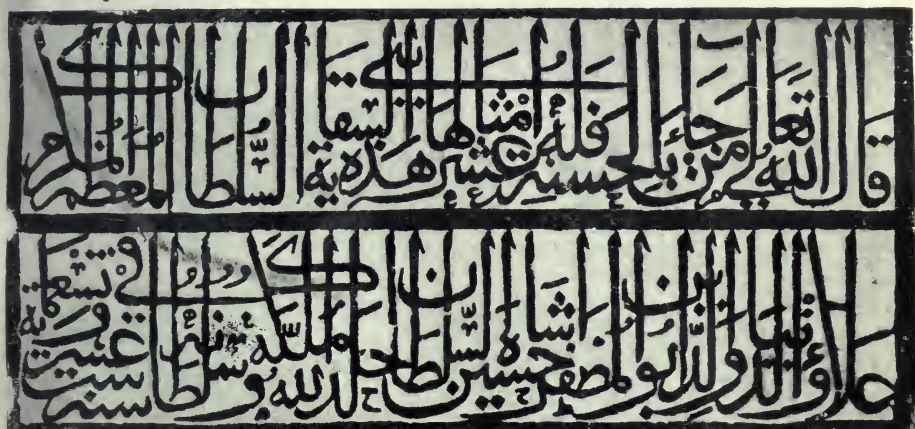 قال الله تعالى من جاء بالحسنة فله عشر امثالها بنى هذه السقاية السلطان المعظم المكرم
علاؤ الدنيا والدين ابو المظفر حسين شاه السلطان خلد الله ملكه وسلطانه فى سنة ست عشر وتسعماية